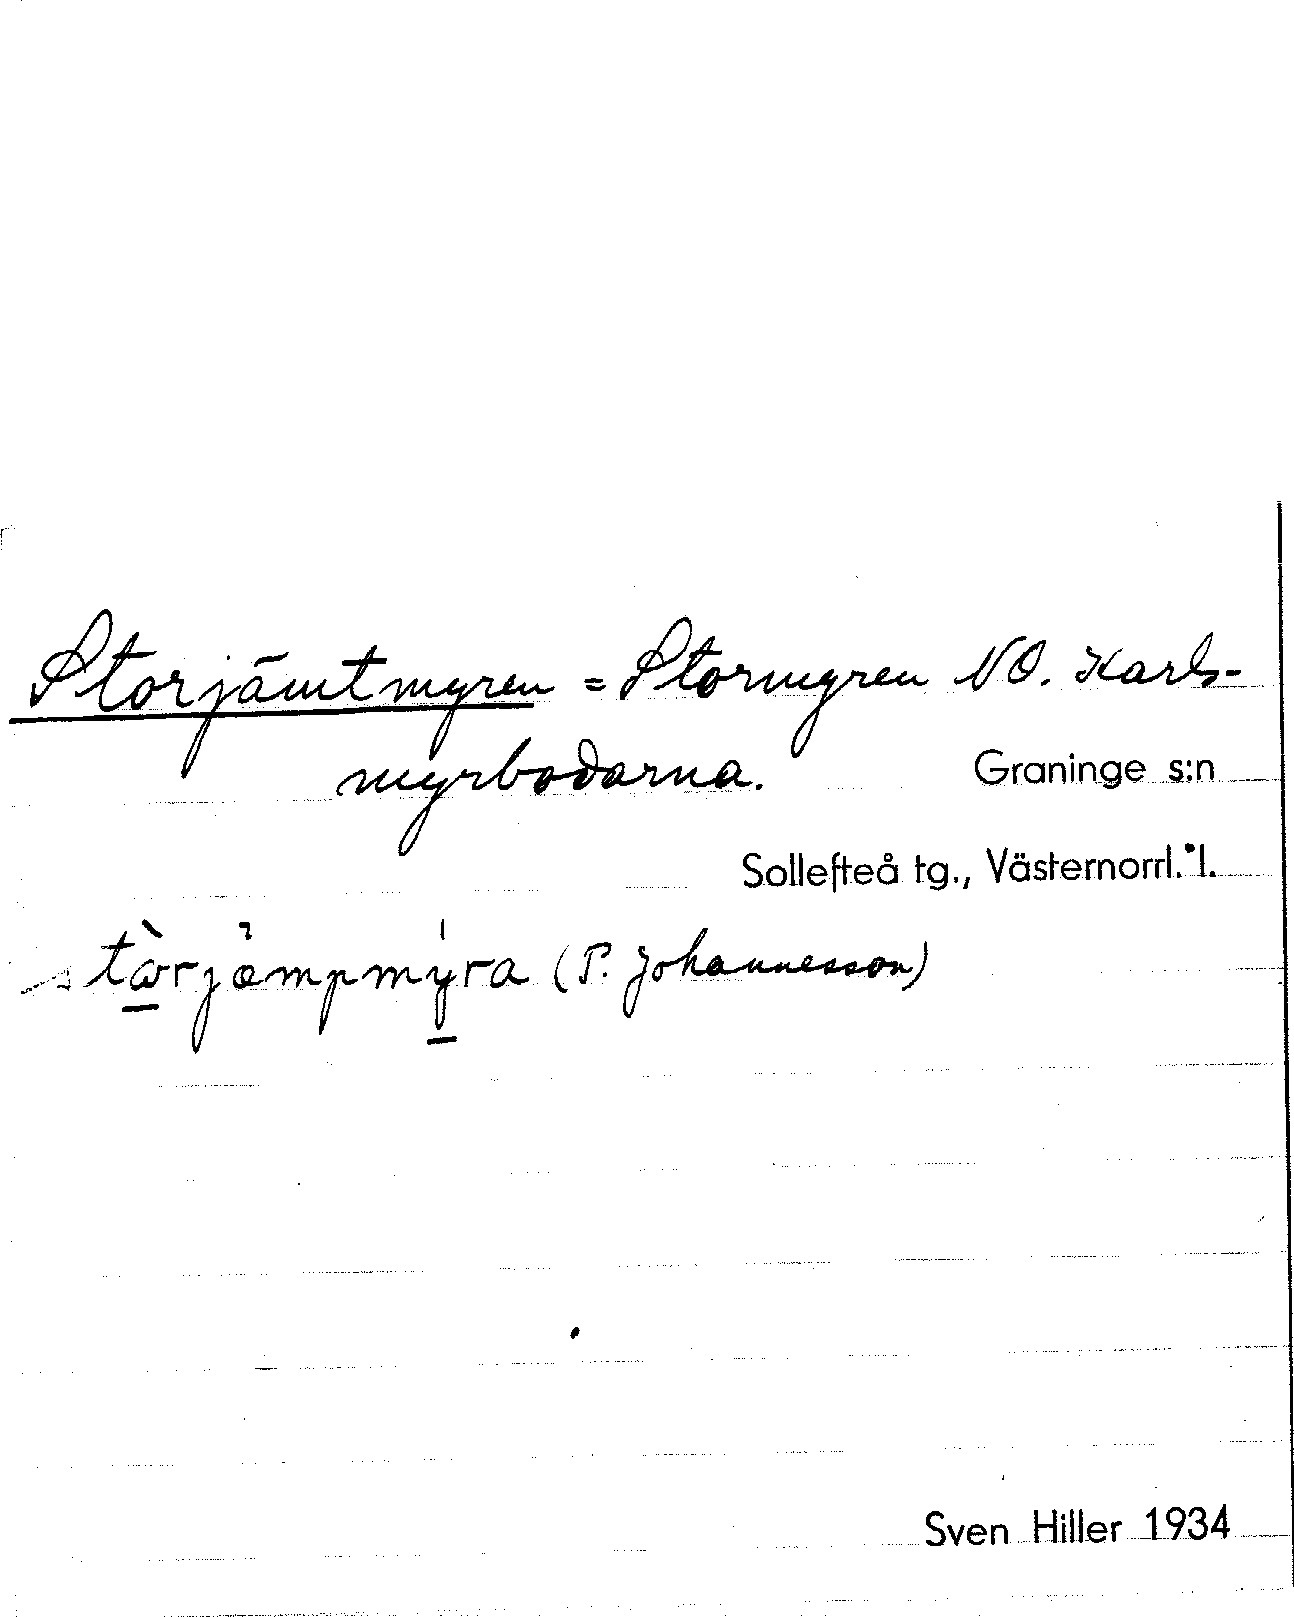 Storjämtmyren = Stormyren NO. Karls-
myrbodarna.
Graninge s:n
Sollefteå tg., Västernorrl. l.
(P. Johannesson)
Sven Hiller 1934